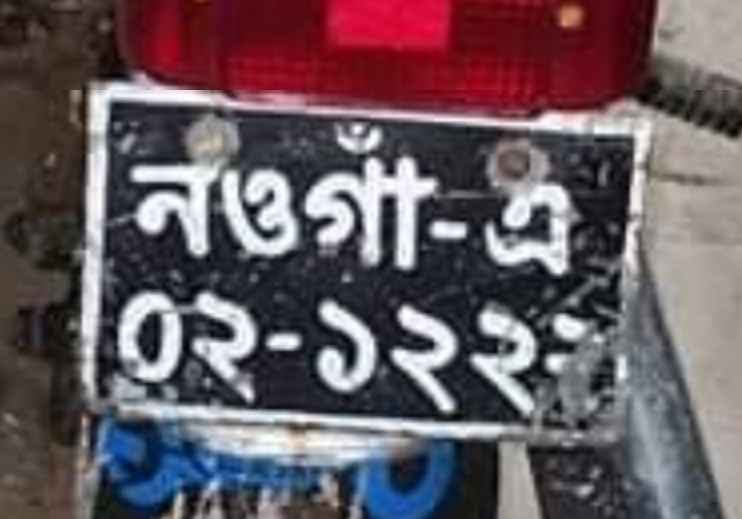 নওগাঁ-এ
০২-১২২